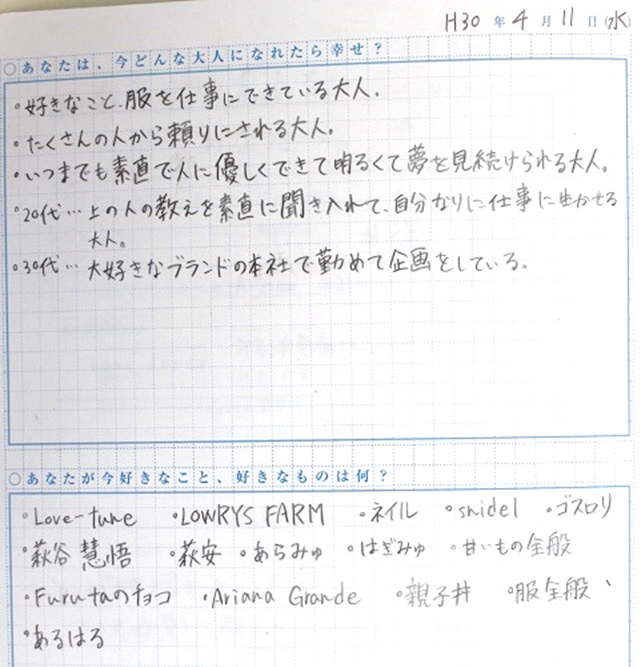 H30年4月11日(水)
○あなたは、今どんな大人になれたら幸せ？
・好きなこと、服を仕事にできている大人。
・たくさんの人から頼りにされる大人。
・いつまでも素直で人に優しくできて明るくて夢を見続けられる大人。
・20代…上の人の教えを素直に聞き入れて、自分なりに仕事に生かせる
大人。
・30代…大好きなブランドの本社で勤めて企画をしている。
○あなたが今好きなこと、好きなものは何？
・Love-tune ・LOWRYS FARM ・ネイル ・snidel ・ゴスロリ
・萩谷慧悟 ・萩安 ・あらみゅ ・はぎみゅ ・甘いもの全般
・Furutaのチョコ ・Ariana Grande ・親子丼 ・服全般、
・あるはる